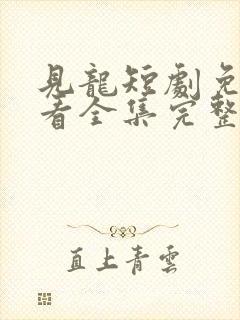 見龍短劇免
看全集完整
直上青雲